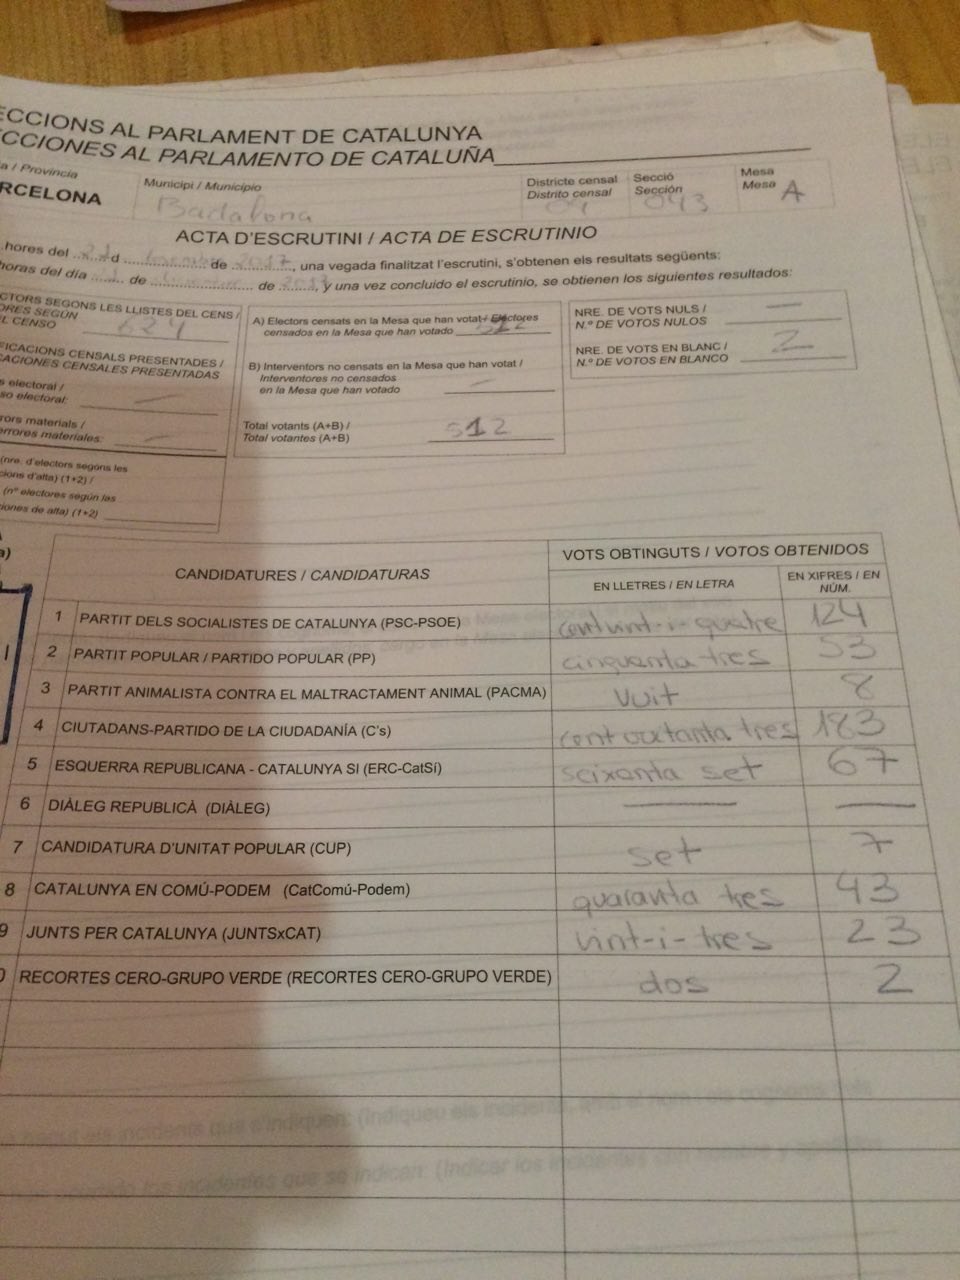 ECCIONS AL PARLAMENT DE CATALUNYA
CCIONES AL PARLAMENTO DE CATALUÑA
a / Provincia
RCELONA
Municipi / Municipio
Badalona
Districte censal
Distrito censal
Secció
Sección
043
Mesa
Mesa A
ACTA D'ESCRUTINI / ACTA DE ESCRUTINIO
hores del 21 d de 2017, una vegada finalitzat l'escrutini, s'obtenen els resultats següents:
horas del día de de y una vez concluido el escrutinio, se obtienen los siguientes resultados:
CTORS SEGONS LES LLISTES DEL CENS /
ORES SEGÚN
L CENSO 624
IFICACIONS CENSALS PRESENTADES /
CACIONES CENSALES PRESENTADAS
s electoral /
so electoral: —
rors materials /
errores materiales: —
(nre. d'electors segons les
cions d'alta) (1+2) /
(nº electores según las
iones de alta) (1+2)
A) Electors censats en la Mesa que han votat / Electores
censados en la Mesa que han votado 512
B) Interventors no censats en la Mesa que han votat /
Interventores no censados
en la Mesa que han votado —
Total votants (A+B) /
Total votantes (A+B) 512
NRE. DE VOTS NULS /
N.º DE VOTOS NULOS —
NRE. DE VOTS EN BLANC /
N.º DE VOTOS EN BLANCO 2
a)
CANDIDATURES / CANDIDATURAS
VOTS OBTINGUTS / VOTOS OBTENIDOS
EN LLETRES / EN LETRA
EN XIFRES / EN
NÚM.
1 PARTIT DELS SOCIALISTES DE CATALUNYA (PSC-PSOE) cent vint-i-quatre 124
2 PARTIT POPULAR / PARTIDO POPULAR (PP) cinquanta tres 53
3 PARTIT ANIMALISTA CONTRA EL MALTRACTAMENT ANIMAL (PACMA) vuit 8
4 CIUTADANS-PARTIDO DE LA CIUDADANÍA (C's) cent vuitanta tres 183
5 ESQUERRA REPUBLICANA - CATALUNYA SI (ERC-CatSí) seixanta set 67
6 DIÀLEG REPUBLICÀ (DIÀLEG) — —
7 CANDIDATURA D'UNITAT POPULAR (CUP) set 7
8 CATALUNYA EN COMÚ-PODEM (CatComú-Podem) quaranta tres 43
9 JUNTS PER CATALUNYA (JUNTSxCAT) vint-i-tres 23
0 RECORTES CERO-GRUPO VERDE (RECORTES CERO-GRUPO VERDE) dos 2